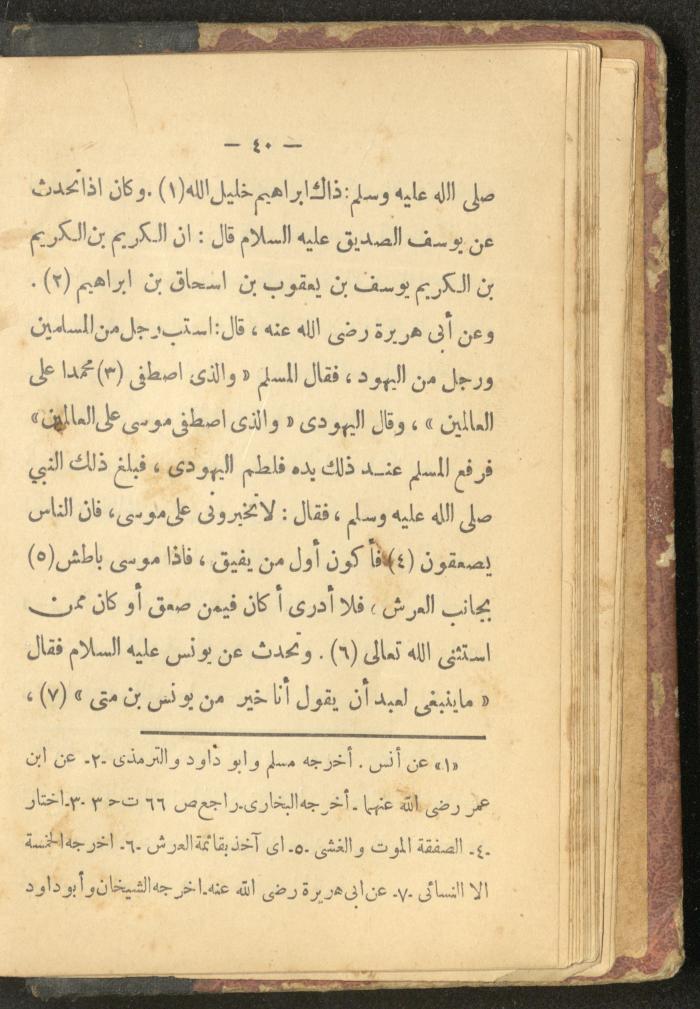 — ٤٠ —
صلى الله عليه وسلم: ذاك ابراهيم خليل الله (١) . وكان اذا تحدث
عن يوسف الصديق عليه السلام قال : ان الكريم بن الكريم
بن الكريم يوسف بن يعقوب بن اسحاق بن ابراهيم (٢) .
وعن أبى هريرة رضى الله عنه ، قال: استب رجل من المسلمين
ورجل من اليهود ، فقال المسلم « والذى اصطفى (٣) محمدا على
العالمين » ، وقال اليهودى « والذى اصطفى موسى على العالمين »
فرفع المسلم عند ذلك يده فلطم اليهودى ، فبلغ ذلك النبي
صلى الله عليه وسلم ، فقال : لا تخيرونى على موسى ، فان الناس
يصعقون (٤) فأكون أول من يفيق ، فاذا موسى باطش (٥)
بجانب العرش ، فلا أدرى أكان فيمن صعق أو كان ممن
استثنى الله تعالى (٦) . وتحدث عن يونس عليه السلام فقال
« ما ينبغى لعبد أن يقول أنا خير من يونس بن متى » (٧) ،
«١» عن أنس . أخرجه مسلم وابو داود والترمذى -٢- عن ابن
عمر رضى الله عنهما - أخرجه البخارى - راجع ص ٦٦ ت ح ٣ -٣- اختار
-٤- الصفقة الموت والغشى -٥- اى آخذ بقائمة العرش -٦- اخرجه الخمسة
الا النسائى -٧- عن ابى هريرة رضى الله عنه - اخرجه الشيخان وأبو داود